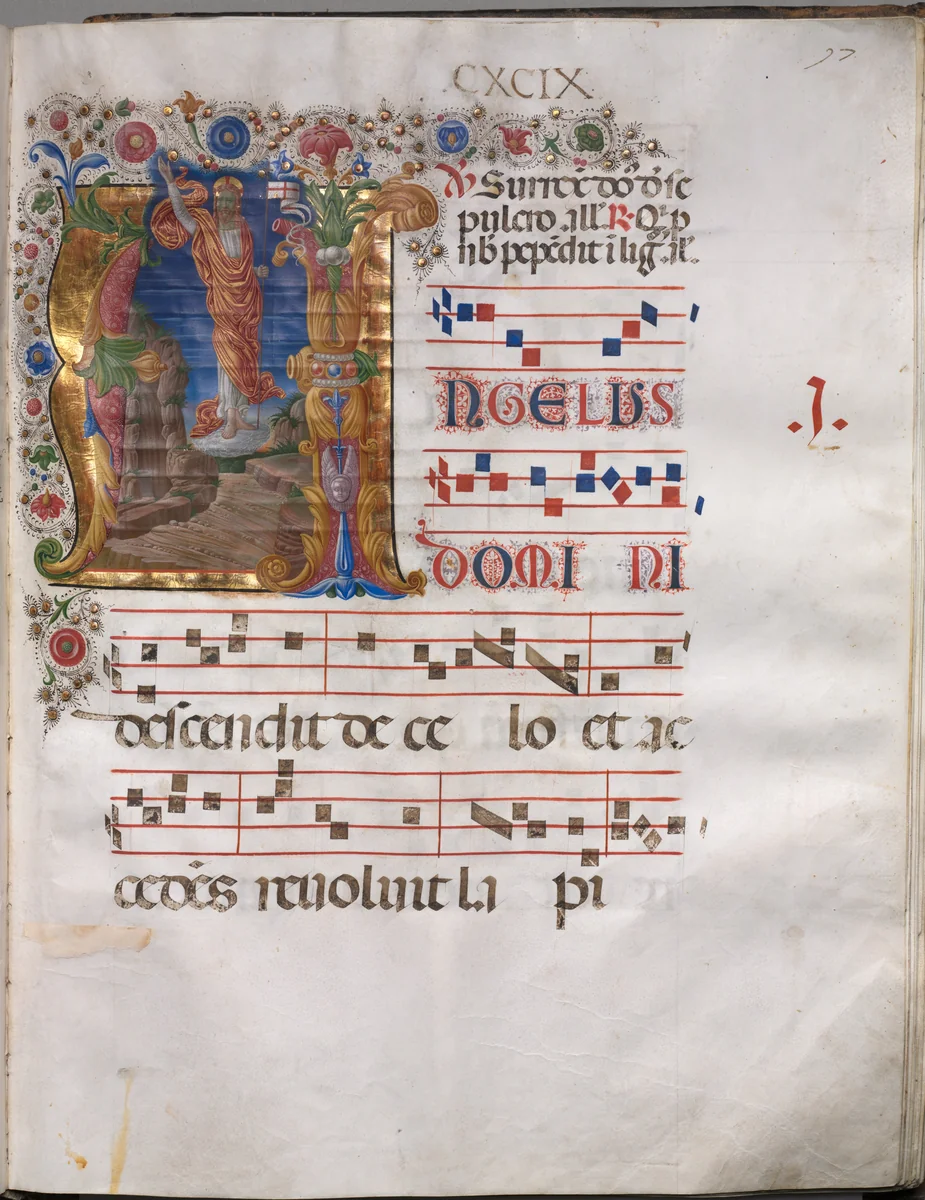 CXCIX
97
℣ Surrexit dn̄s de se
pulcro all'. ℟. Qui p
nob̄ pepēdit ī lig. all'.
ANGELUS
.I.
DOMINI
descendit de celo et ac
cedēs revolvit lapi